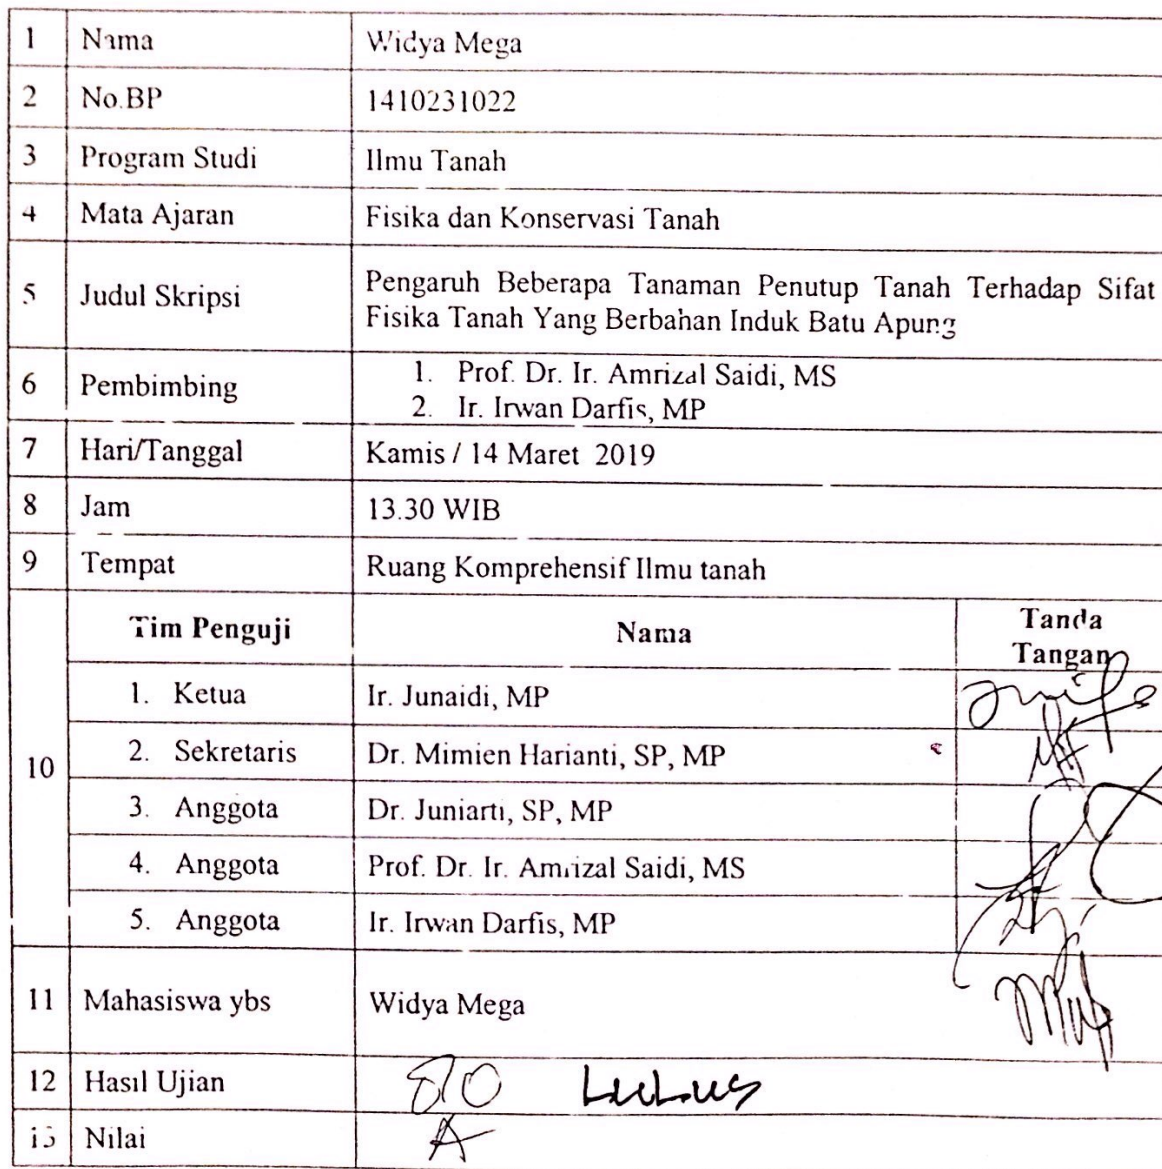 1 Nama Widya Mega
2 No.BP 1410231022
3 Program Studi Ilmu Tanah
4 Mata Ajaran Fisika dan Konservasi Tanah
5 Judul Skripsi Pengaruh Beberapa Tanaman Penutup Tanah Terhadap Sifat
Fisika Tanah Yang Berbahan Induk Batu Apung
6 Pembimbing 1. Prof. Dr. Ir. Amrizal Saidi, MS
2. Ir. Irwan Darfis, MP
7 Hari/Tanggal Kamis / 14 Maret 2019
8 Jam 13.30 WIB
9 Tempat Ruang Komprehensif Ilmu tanah
10 Tim Penguji Nama Tanda
Tangan
1. Ketua Ir. Junaidi, MP
2. Sekretaris Dr. Mimien Harianti, SP, MP
3. Anggota Dr. Juniarti, SP, MP
4. Anggota Prof. Dr. Ir. Amrizal Saidi, MS
5. Anggota Ir. Irwan Darfis, MP
11 Mahasiswa ybs Widya Mega
12 Hasil Ujian Lulus
13 Nilai A